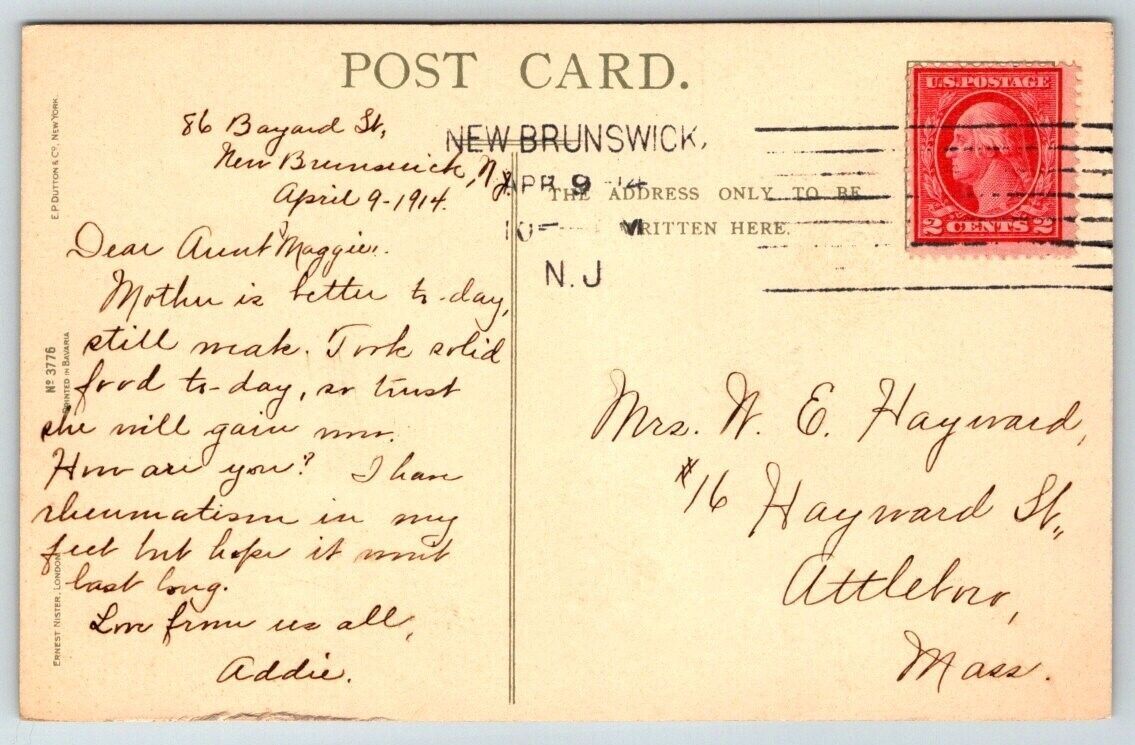 POST CARD.
86 Bayard St,
New Brunswick, N.J.
April 9-1914.
Dear Aunt Maggie:
Mother is better to-day,
still weak. Took solid
food to-day, so trust
she will gain now.
How are you? I have
rheumatism in my
feet but hope it won't
last long.
Love from us all,
Addie.
E.P. DUTTON & CO, NEW YORK.
No 3776
PRINTED IN BAVARIA
ERNEST NISTER, LONDON
NEW BRUNSWICK,
APR 9 14
10-
N.J
THE ADDRESS ONLY TO BE
WRITTEN HERE.
U.S. POSTAGE
2 CENTS 2
Mrs. W. E. Hayward,
#16 Hayward St.,
Attleboro,
Mass.